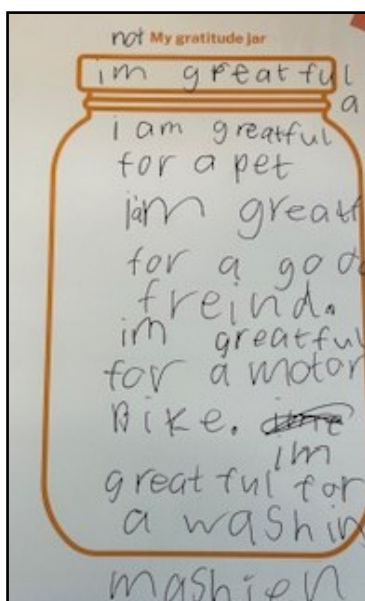 not My gratitude jar
im greatful
a
i am greatful
for a pet
im greatf
for a good
freind.
im greatful
for a motor
Bike.
im
greatful for
a washin
mashien